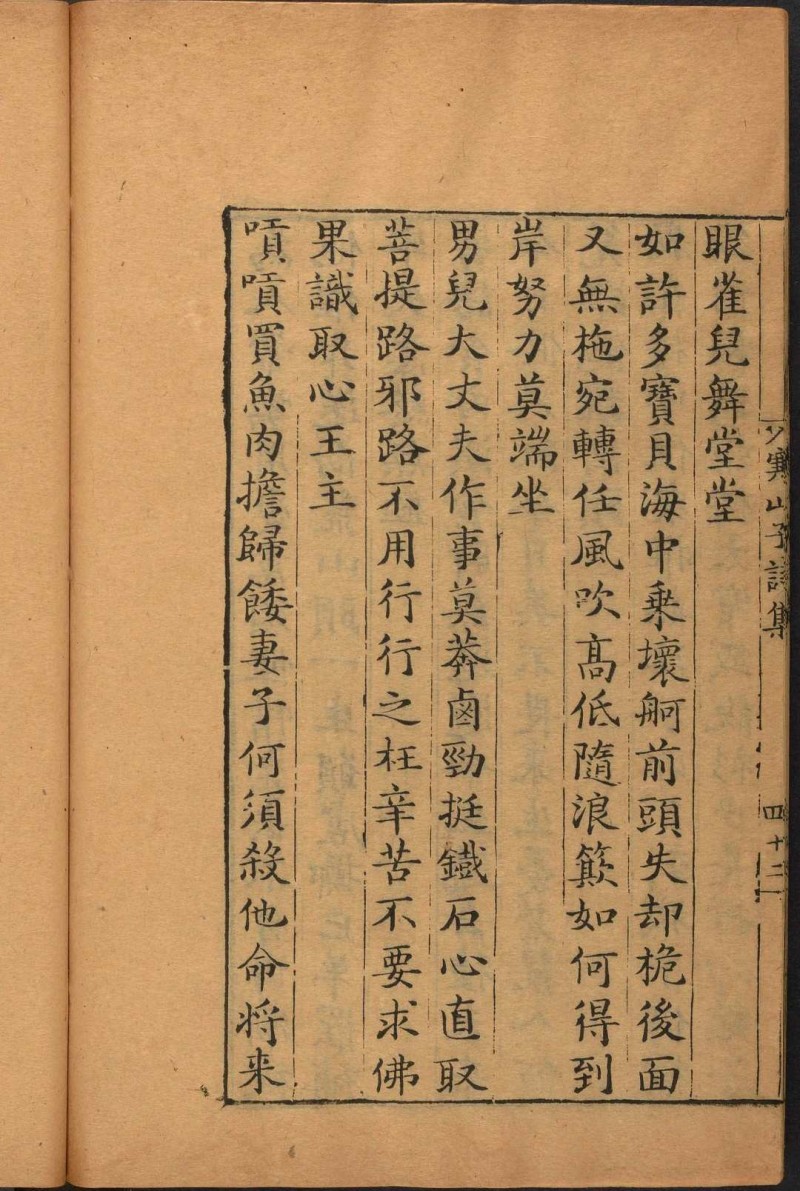 眼雀兒舞堂堂
如許多寶貝海中乗壞舸前頭失却桅後面
又無柂宛轉任風吹髙低隨浪簸如何得到
岸努力莫端坐
男兒大丈夫作事莫莽鹵勁挺鐵石心直取
菩提路邪路不用行行之枉辛苦不要求佛
果識取心王主
嗊嗊買魚肉擔歸餧妻子何須殺他命将来
寒山子詩集
四十二